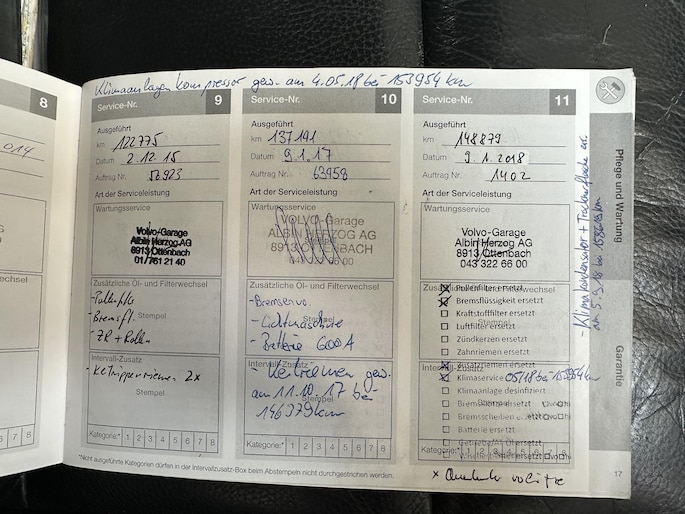 8
014
Klimaanlagen Kompressor gew. am 4.05.18 bei 153954 km
Service-Nr. 9
Ausgeführt
km 122775
Datum 2.12.15
Auftrag Nr. 52923
Art der Serviceleistung
Wartungsservice
Volvo-Garage
Albin Herzog AG
8913 Ottenbach
01/761 21 40
Zusätzliche Öl- und Filterwechsel
- Pollenfilt.
- Bremsfl.
Stempel
- ZR + Rollen
Intervall-Zusatz
- Keilrippenriemen 2x
Stempel
Kategorie:* 1 2 3 4 5 6 7 8
Service-Nr. 10
Ausgeführt
km 137191
Datum 9.1.17
Auftrag Nr. 63958
Art der Serviceleistung
Wartungsservice
VOLVO-Garage
ALBIN HERZOG AG
8913 OTTENBACH
043 322 66 00
Zusätzliche Öl- und Filterwechsel
Stempel
- Batterie 600A
Intervall-Zusatz
- Keilriemen gew.
am 11.10.17 bei
Stempel
146379 km
Kategorie:* 1 2 3 4 5 6 7 8
Service-Nr. 11
Ausgeführt
km 148879
Datum 9.1.2018
Auftrag Nr. 1402
Art der Serviceleistung
Wartungsservice
Volvo-Garage
Albin Herzog AG
8913 Ottenbach
043 322 66 00
Pollenfilter ersetzt
Bremsflüssigkeit ersetzt
Kraftstofffilter ersetzt
Stempel
Luftfilter ersetzt
Zündkerzen ersetzt
Zahnriemen ersetzt
Zusatzriemen ersetzt
Klimaservice 05/18 bei 153954 km
Klimaanlage desinfiziert
Bremsscheiben ersetzt
Batterie ersetzt
*Nicht ausgeführte Kategorien dürfen in der Intervallzusatz-Box beim Abstempeln nicht durchgestrichen werden.
17
Pflege und Wartung
Garantie
- Klimakondensator + Trocknerflasche er.